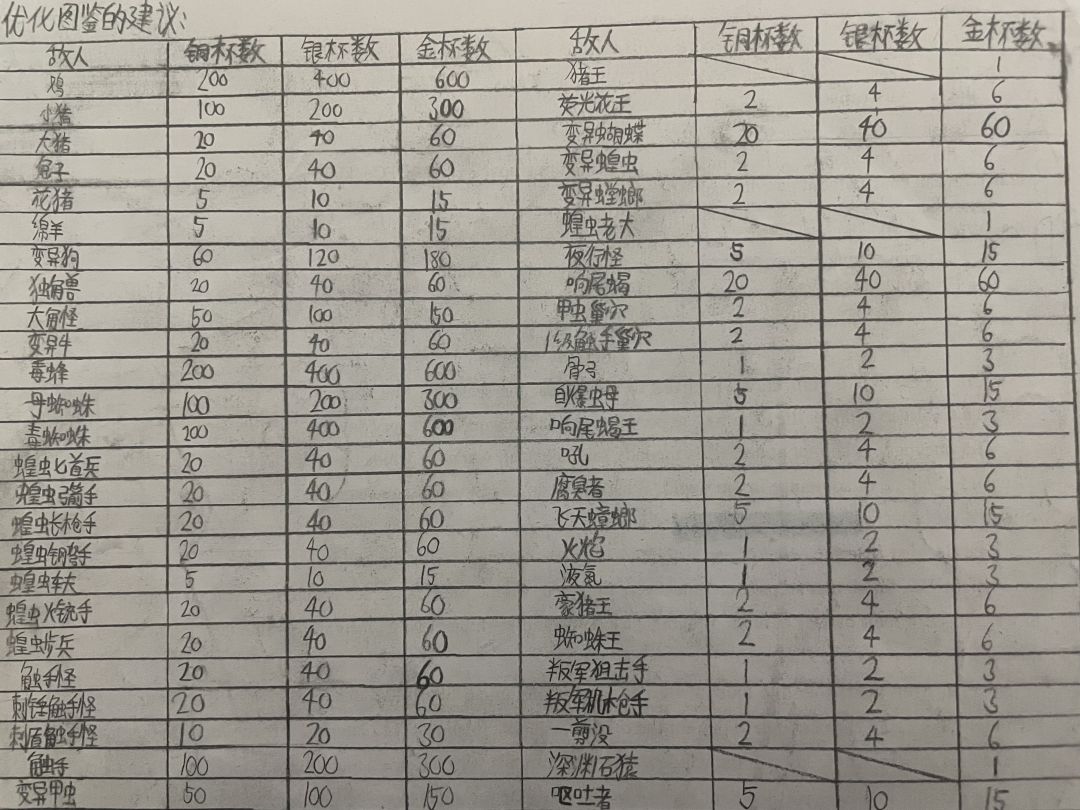 优化图鉴的建议:
敌人 铜杯数 银杯数 金杯数 敌人 铜杯数 银杯数 金杯数
鸡 200 400 600 猪王 1
小猪 100 200 300 荧光花王 2 4 6
大猪 20 40 60 变异蝴蝶 20 40 60
兔子 20 40 60 变异蝗虫 2 4 6
花猪 5 10 15 变异螳螂 2 4 6
绵羊 5 10 15 蝗虫老大 1
变异狗 60 120 180 夜行怪 5 10 15
独角兽 20 40 60 响尾蝎 20 40 60
大角怪 50 100 150 甲虫巢穴 2 4 6
变异牛 20 40 60 1级触手巢穴 2 4 6
毒蜂 200 400 600 骨弓 1 2 3
母蜘蛛 100 200 300 自爆虫母 5 10 15
毒蜘蛛 200 400 600 响尾蝎王 1 2 3
蝗虫匕首兵 20 40 60 吼 2 4 6
蝗虫弓箭手 20 40 60 腐臭者 2 4 6
蝗虫长枪手 20 40 60 飞天蟑螂 5 10 15
蝗虫钢弩手 20 40 60 火焰 1 2 3
蝗虫车夫 5 10 15 液氮 1 2 3
蝗虫火铳手 20 40 60 豪猪王 2 4 6
蝗虫步兵 20 40 60 蜘蛛王 2 4 6
触手怪 20 40 60 叛军狙击手 1 2 3
刺锤触手怪 20 40 60 叛军机枪手 1 2 3
刺盾触手怪 10 20 30 一剪没 2 4 6
触手 100 200 300 深渊石猿 1
变异甲虫 50 100 150 呕吐者 5 10 15